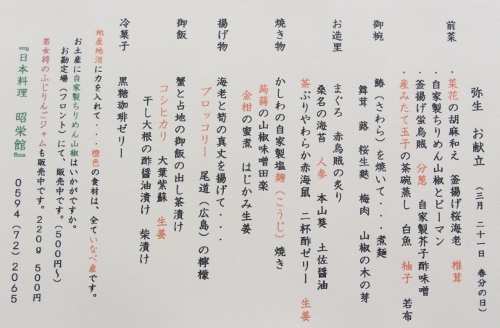 弥生　お献立　（三月　二十一日　春分の日）
前菜
・菜花の胡麻和え　釜揚げ桜海老　椎茸
・自家製ちりめん山椒とピーマン
釜揚げ蛍烏賊　分葱　自家製芥子酢味噌
・産みたて玉子の茶碗蒸し　白魚　柚子　若布
御椀
鰆（さわら）を焼いて・・・煮麺
舞茸　蕗　桜生麩　梅肉　山椒の木の芽
お造里
まぐろ　赤烏賊の炙り
桑名の海苔　人参　本山葵　土佐醤油
茶ぶりやわらか赤海鼠　二杯酢ゼリー　生姜
焼き物
かしわの自家製塩麹（こうじ）焼き
蒟蒻の山椒味噌田楽
金柑の蜜煮　はじかみ生姜
揚げ物
海老と筍の真丈を揚げて・・・
ブロッコリー　尾道（広島）の檸檬
御飯
蟹と占地の御飯の出し茶漬け
コシヒカリ　大葉紫蘇　生姜
干し大根の酢醤油漬け　柴漬け
冷菓子
黒糖珈琲ゼリー
地産地消に力を入れて・・・橙色の食材は、全ていなべ産です。
お土産に自家製ちりめん山椒はいかがですか。
お勘定場（フロント）にて、販売中です。（500円～）
若女将のふじりんごジャムも販売中です。220g　500円
『日本料理　昭栄館』　0594（72）2065